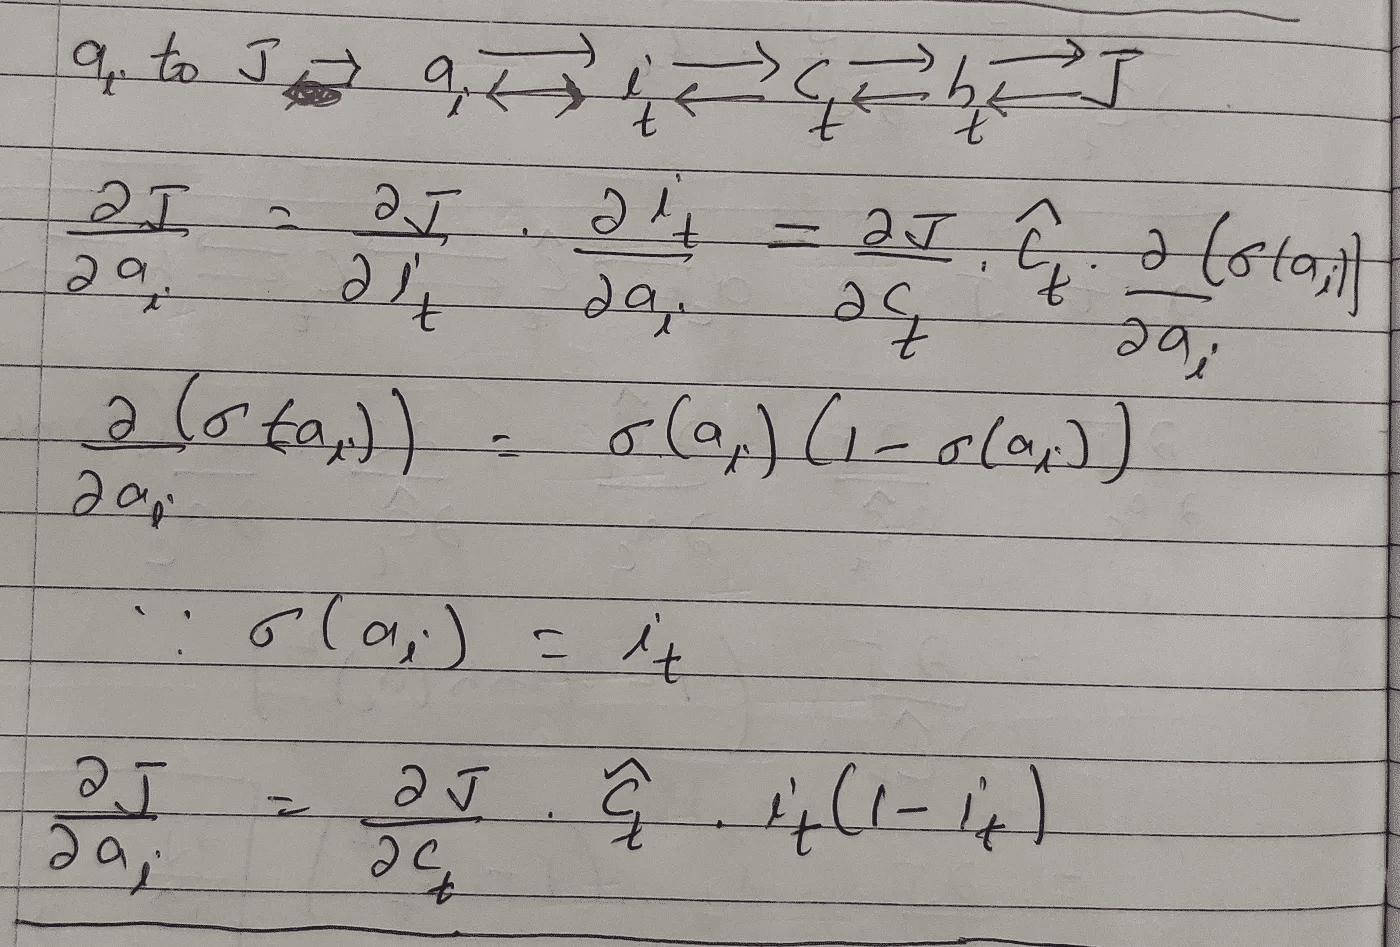 a_i to J ⇄ a_i ⇄ i_t ⇄ C_t ⇄ h_t ⇄ J
∂J/∂a_i = ∂J/∂i_t . ∂i_t/∂a_i = ∂J/∂C_t . Ĉ_t . ∂/∂a_i (σ(a_i))
∂/∂a_i (σ(a_i)) = σ(a_i) (1 - σ(a_i))
∵ σ(a_i) = i_t
∂J/∂a_i = ∂J/∂C_t . Ĉ_t . i_t(1 - i_t)